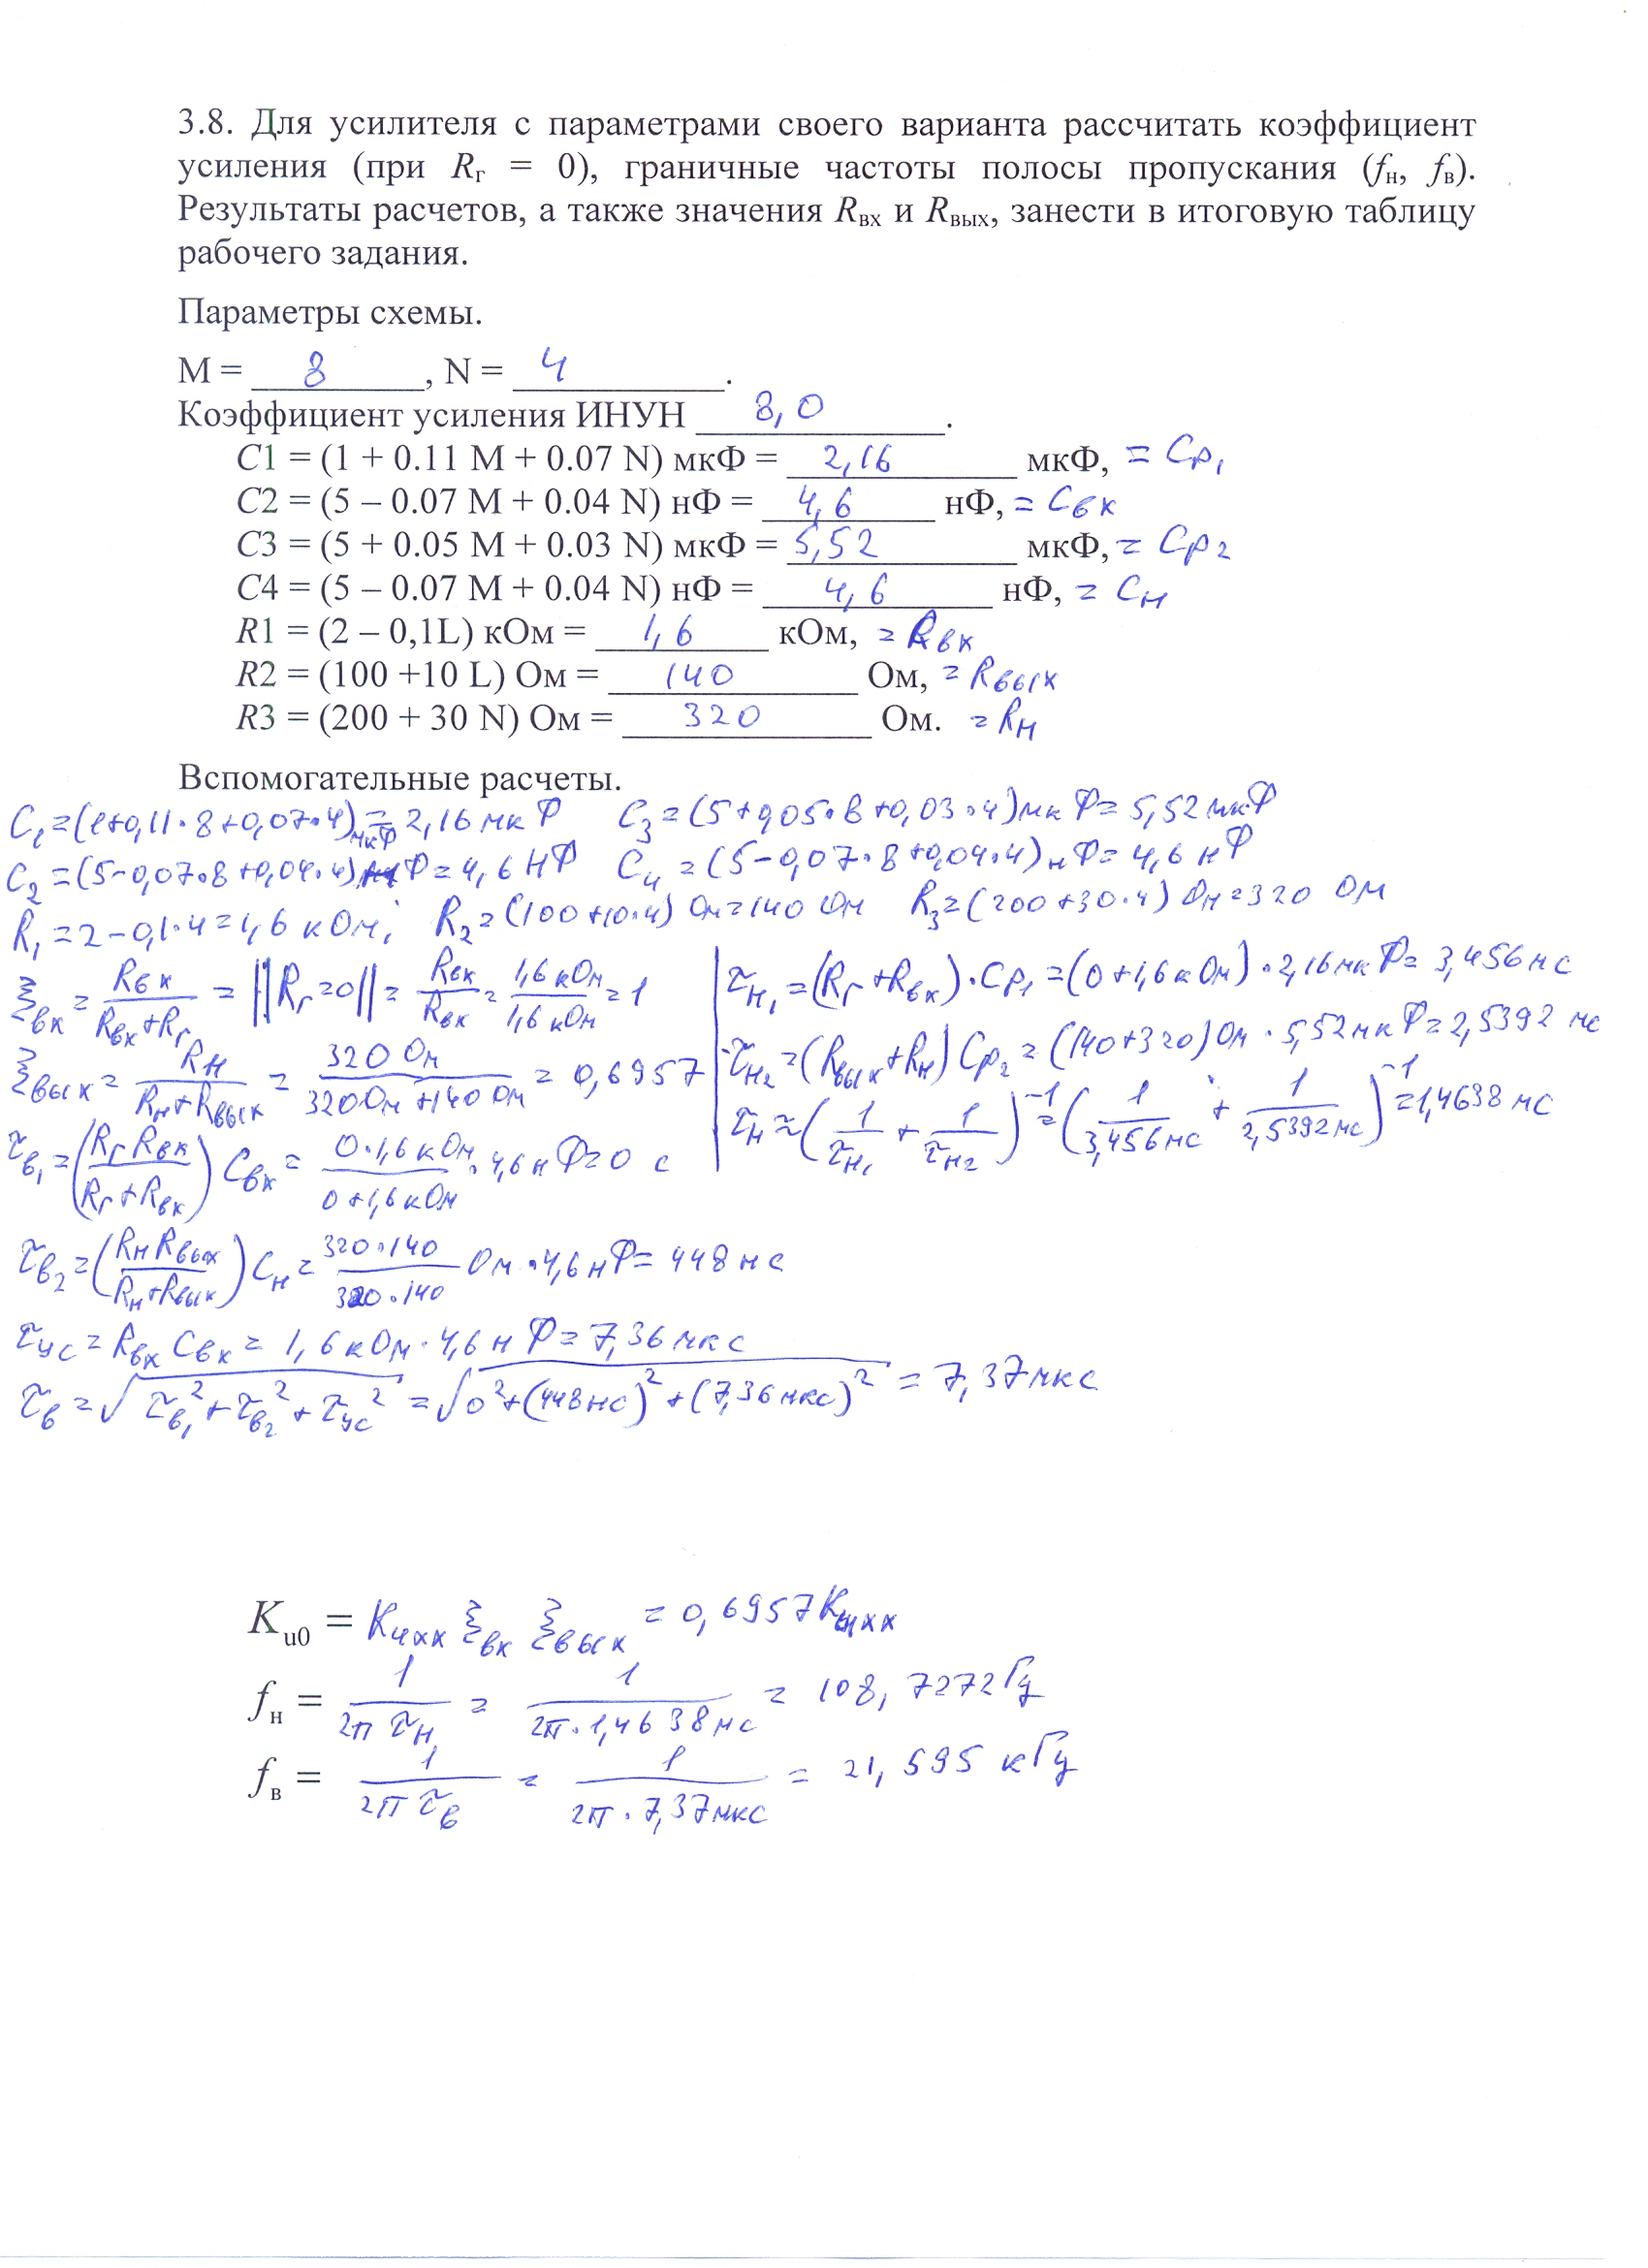 3.8. Для усилителя с параметрами своего варианта рассчитать коэффициент
усиления (при Rг = 0), граничные частоты полосы пропускания (fн, fв).
Результаты расчетов, а также значения Rвх и Rвых, занести в итоговую таблицу
рабочего задания.
Параметры схемы.
M = 8, N = 4.
Коэффициент усиления ИНУН 8,0.
C1 = (1 + 0.11 M + 0.07 N) мкФ = 2,16 мкФ, = Cр1
C2 = (5 – 0.07 M + 0.04 N) нФ = 4,6 нФ, = Cвх
C3 = (5 + 0.05 M + 0.03 N) мкФ = 5,52 мкФ, = Cр2
C4 = (5 – 0.07 M + 0.04 N) нФ = 4,6 нФ, = Cн
R1 = (2 – 0,1L) кОм = 1,6 кОм, = Rвх
R2 = (100 +10 L) Ом = 140 Ом, = Rвых
R3 = (200 + 30 N) Ом = 320 Ом. = Rн
Вспомогательные расчеты.
C1 = (1+0,11·8+0,07·4) мкФ = 2,16 мкФ C3 = (5+0,05·8+0,03·4) мкФ = 5,52 мкФ
C2 = (5-0,07·8+0,04·4) нФ = 4,6 нФ C4 = (5-0,07·8+0,04·4) нФ = 4,6 нФ
R1 = 2-0,1·4 = 1,6 кОм; R2 = (100+10·4) Ом = 140 Ом R3 = (200+30·4) Ом = 320 Ом
ξвх = Rвх/(Rвх+Rг) = ||Rг=0|| = Rвх/Rвх = 1,6 кОм/1,6 кОм = 1
ξвых = Rн/(Rн+Rвых) = 320 Ом/(320 Ом+140 Ом) = 0,6957
τв1 = (Rг Rвх/(Rг+Rвх)) Cвх = 0·1,6 кОм/(0+1,6 кОм) · 4,6 нФ = 0 с
τн1 = (Rг+Rвх)·Cр1 = (0+1,6 кОм)·2,16 мкФ = 3,456 мс
τн2 = (Rвых+Rн) Cр2 = (140+320) Ом · 5,52 мкФ = 2,5392 мс
τн ≈ (1/τн1 + 1/τн2)^-1 = (1/3,456 мс + 1/2,5392 мс)^-1 = 1,4638 мс
τв2 = (Rн Rвых/(Rн+Rвых)) Cн = 320·140/320·140 Ом · 4,6 нФ = 448 нс
τус = Rвх Cвх = 1,6 кОм · 4,6 нФ = 7,36 мкс
τв = √(τв1² + τв2² + τус²) = √(0² + (448 нс)² + (7,36 мкс)²) = 7,37 мкс
Kи0 = Kихх ξвх ξвых = 0,6957 Kихх
fн = 1/(2π τн) = 1/(2π·1,4638 мс) = 108,7272 Гц
fв = 1/(2π τв) = 1/(2π·7,37 мкс) = 21,595 кГц